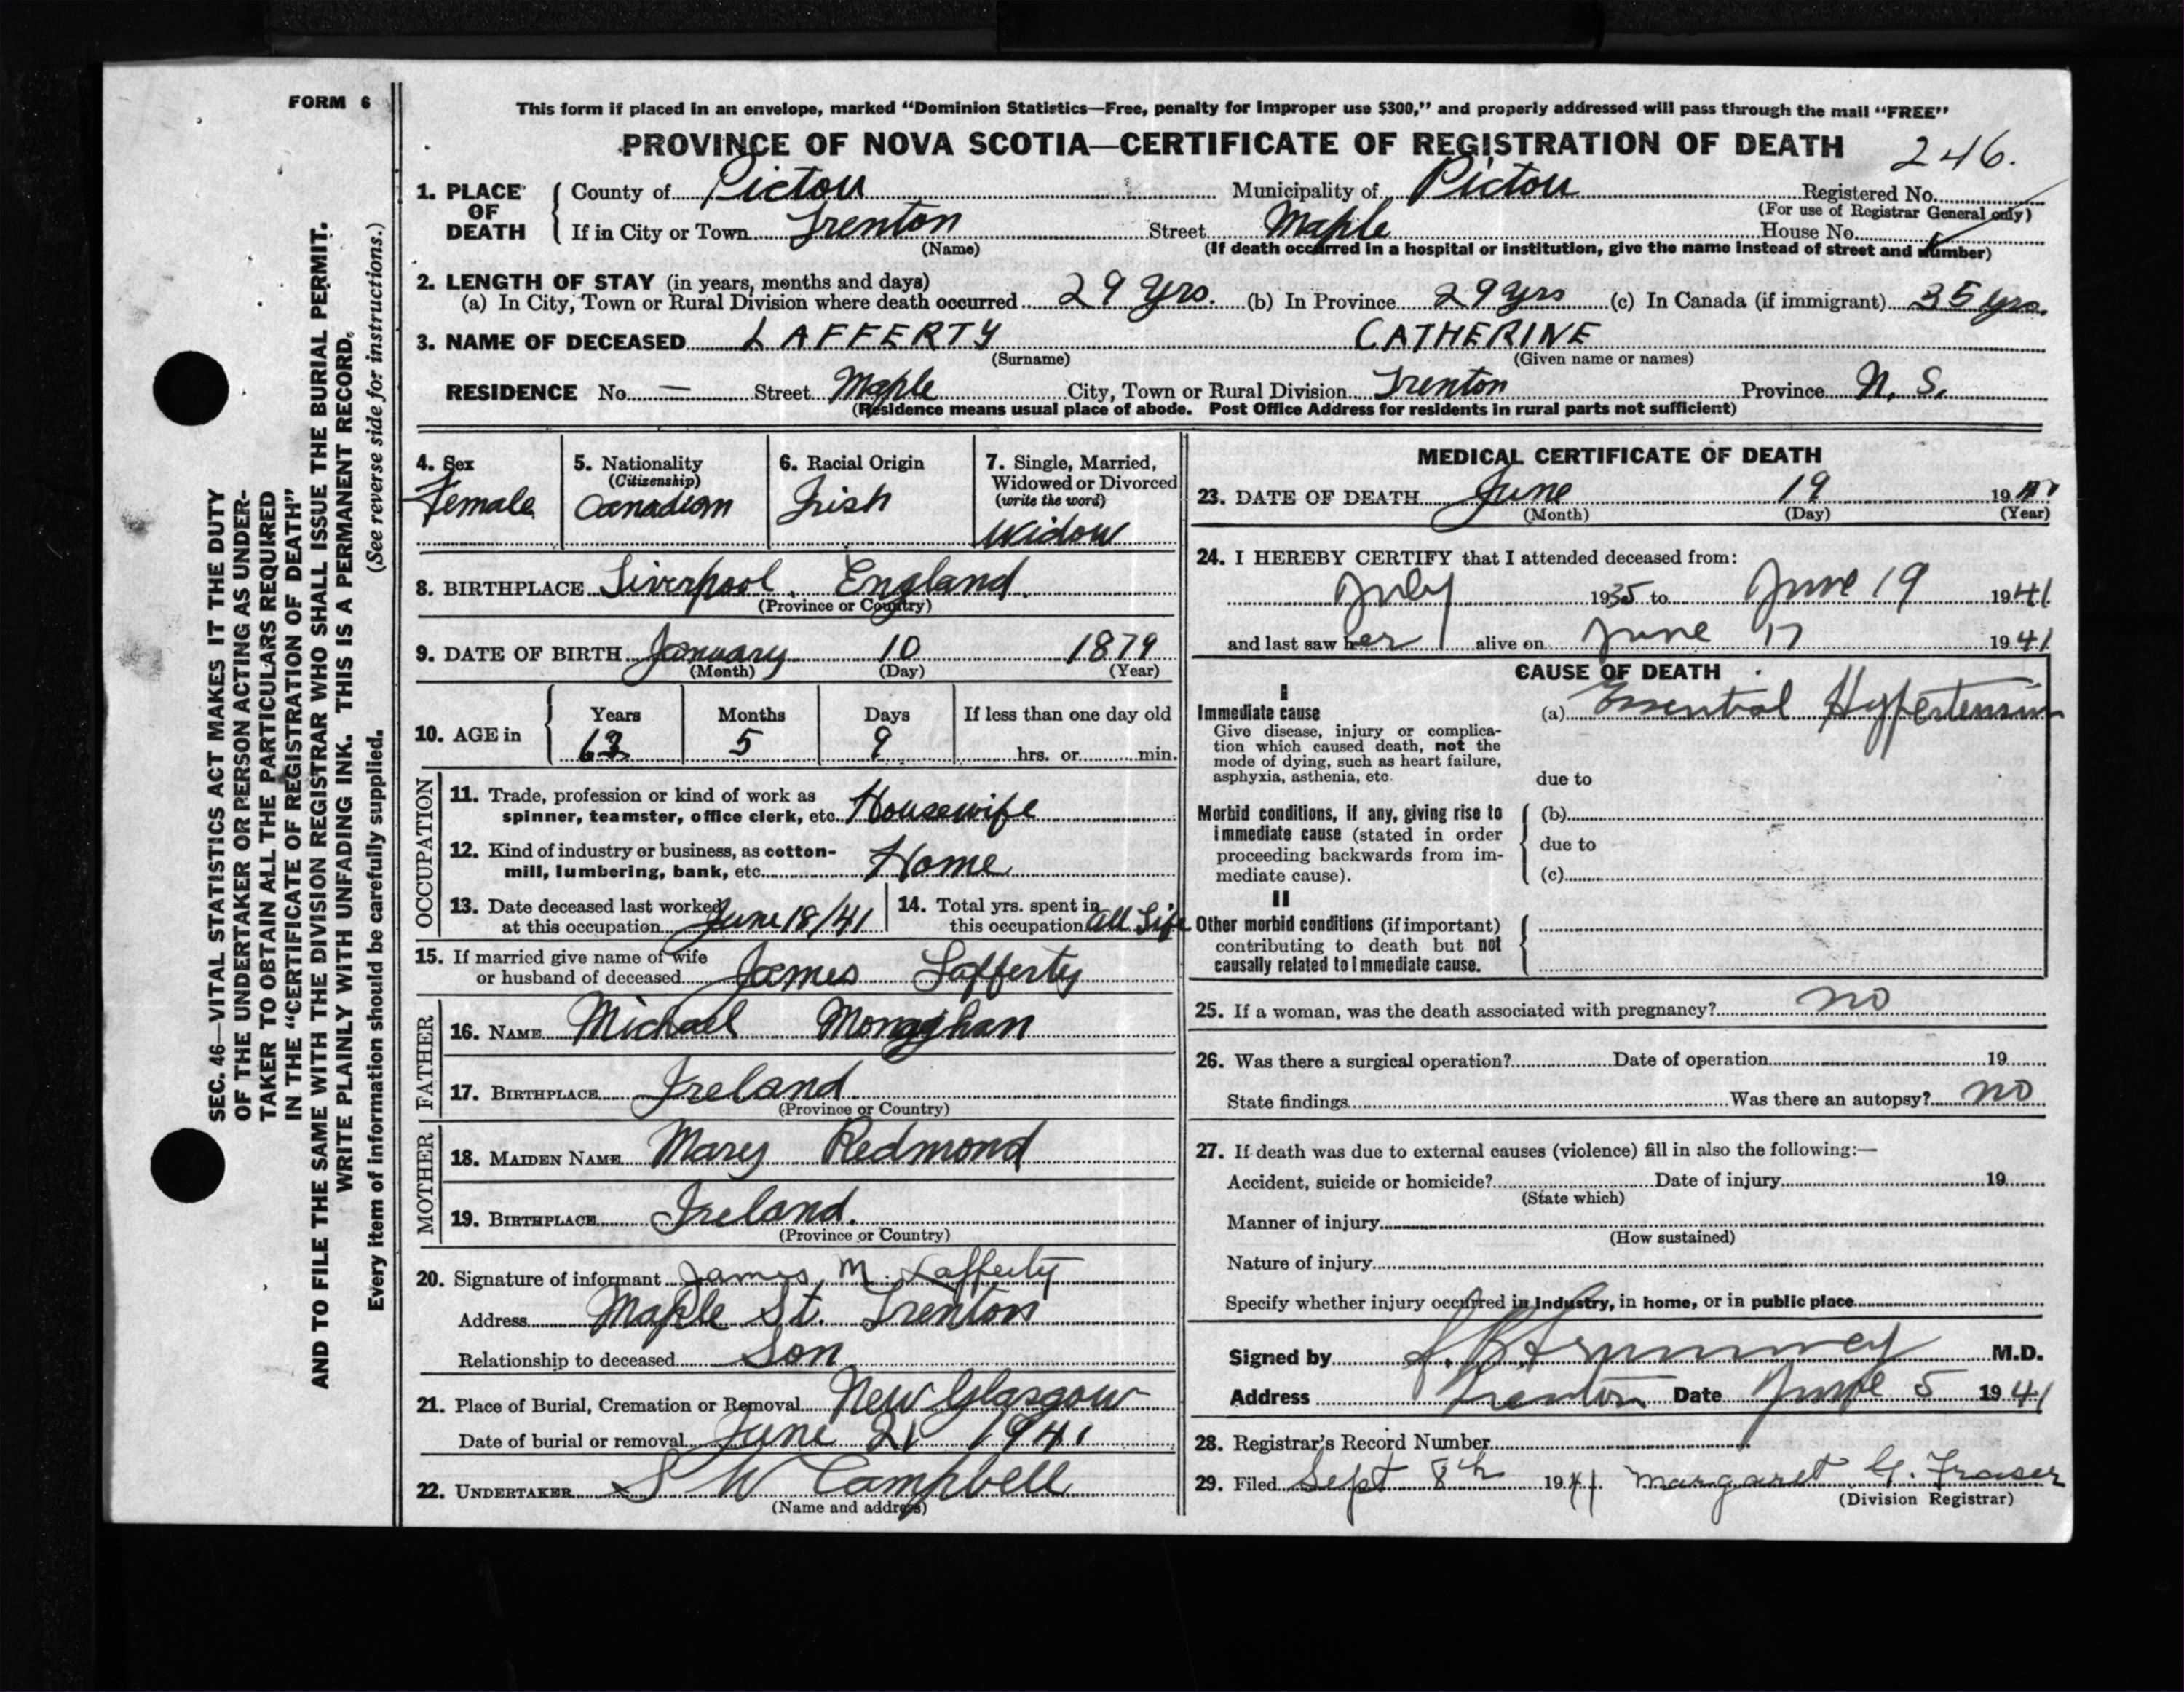 FORM 6
SEC. 46—VITAL STATISTICS ACT MAKES IT THE DUTY
OF THE UNDERTAKER OR PERSON ACTING AS UNDER-
TAKER TO OBTAIN ALL THE PARTICULARS REQUIRED
IN THE "CERTIFICATE OF REGISTRATION OF DEATH"
AND TO FILE THE SAME WITH THE DIVISION REGISTRAR WHO SHALL ISSUE THE BURIAL PERMIT.
WRITE PLAINLY WITH UNFADING INK. THIS IS A PERMANENT RECORD.
Every item of information should be carefully supplied. (See reverse side for instructions.)
This form if placed in an envelope, marked "Dominion Statistics—Free, penalty for improper use $300," and properly addressed will pass through the mail "FREE"
PROVINCE OF NOVA SCOTIA—CERTIFICATE OF REGISTRATION OF DEATH 246.
1. PLACE OF DEATH County of Pictou Municipality of Pictou Registered No.
(For use of Registrar General only)
If in City or Town Trenton Street Maple House No.
(Name) (If death occurred in a hospital or institution, give the name instead of street and number)
2. LENGTH OF STAY (in years, months and days)
(a) In City, Town or Rural Division where death occurred 29 Yrs. (b) In Province 29 yrs (c) In Canada (if immigrant) 35 yrs.
3. NAME OF DECEASED LAFFERTY CATHERINE
(Surname) (Given name or names)
RESIDENCE No. — Street Maple City, Town or Rural Division Trenton Province N. S.
(Residence means usual place of abode. Post Office Address for residents in rural parts not sufficient)
4. Sex
Female
5. Nationality
(Citizenship)
Canadian
6. Racial Origin
Irish
7. Single, Married,
Widowed or Divorced
(write the word)
Widow
8. BIRTHPLACE Liverpool. England.
(Province or Country)
9. DATE OF BIRTH January 10 1879
(Month) (Day) (Year)
10. AGE in Years Months Days If less than one day old
63 5 9 hrs. or min.
OCCUPATION
11. Trade, profession or kind of work as
spinner, teamster, office clerk, etc. Housewife
12. Kind of industry or business, as cotton-
mill, lumbering, bank, etc. Home
13. Date deceased last worked
at this occupation June 18/41
14. Total yrs. spent in
this occupation All Life
15. If married give name of wife
or husband of deceased James Lafferty
FATHER
16. NAME Michael Monaghan
17. BIRTHPLACE Ireland.
(Province or Country)
MOTHER
18. MAIDEN NAME Mary Redmond
19. BIRTHPLACE Ireland.
(Province or Country)
20. Signature of informant James M. Lafferty
Address Maple St. Trenton
Relationship to deceased Son
21. Place of Burial, Cremation or Removal New Glasgow
Date of burial or removal June 21 1941
22. UNDERTAKER S W Campbell
(Name and address)
MEDICAL CERTIFICATE OF DEATH
23. DATE OF DEATH June 19 19
(Month) (Day) (Year)
24. I HEREBY CERTIFY that I attended deceased from:
July 1935 to June 19 1941
and last saw her alive on June 17 1941
CAUSE OF DEATH
I
Immediate cause (a) Essential Hypertension
Give disease, injury or complica-
tion which caused death, not the
mode of dying, such as heart failure,
asphyxia, asthenia, etc. due to
Morbid conditions, if any, giving rise to (b)
immediate cause (stated in order due to
proceeding backwards from im-
mediate cause). (c)
II
Other morbid conditions (if important)
contributing to death but not
causally related to immediate cause.
25. If a woman, was the death associated with pregnancy? no
26. Was there a surgical operation? Date of operation 19
State findings Was there an autopsy? no
27. If death was due to external causes (violence) fill in also the following:—
Accident, suicide or homicide? Date of injury 19
(State which)
Manner of injury
(How sustained)
Nature of injury
Specify whether injury occurred in industry, in home, or in public place
Signed by M.D.
Address Trenton Date June 5 1941
28. Registrar's Record Number
29. Filed Sept 8th 1941 Margaret G. Fraser
(Division Registrar)